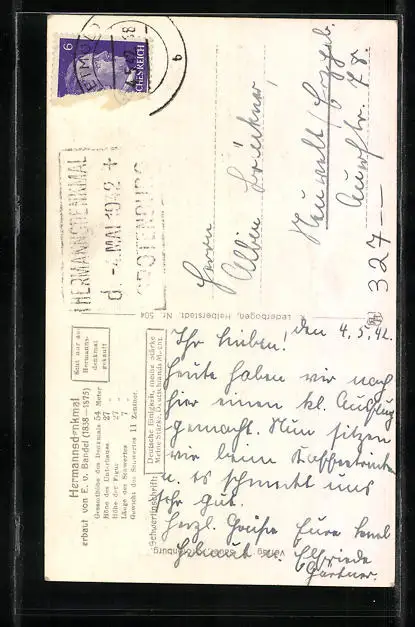 Hermannsdenkmal
erbaut von E. v. Bandel (1838—1875)
Gesamthöhe des Denkmals 54 Meter
Höhe des Unterbaues 27 "
Höhe der Figur 27 "
Länge des Schwertes 7 "
Gewicht des Schwertes 11 Zentner.
Echt nur am
Hermanns-
denkmal
gekauft
Schwertinschrift:
Deutsche Einigkeit, meine Stärke
Meine Stärke, Deutschlands Macht.
Lederbogen, Halberstadt. Nr. 504
HERMANNSDENKMAL
d -4.MAI 1942 +
GROTENBURG
DETMOLD
6
DEUTSCHES REICH
den 4.5.42.
Ihr Lieben!
Heute haben wir nach
hier einen kl. Ausflug
gemacht. Nun sitzen
wir beim Kaffeetrinken
u. es schmeckt uns
sehr gut.
Herzl. Grüße Eure
Helmut u. Elfriede
Gärtner.
Herrn
Albin
Neuwelt / Erzgeb.
Auerstr. 78.
327